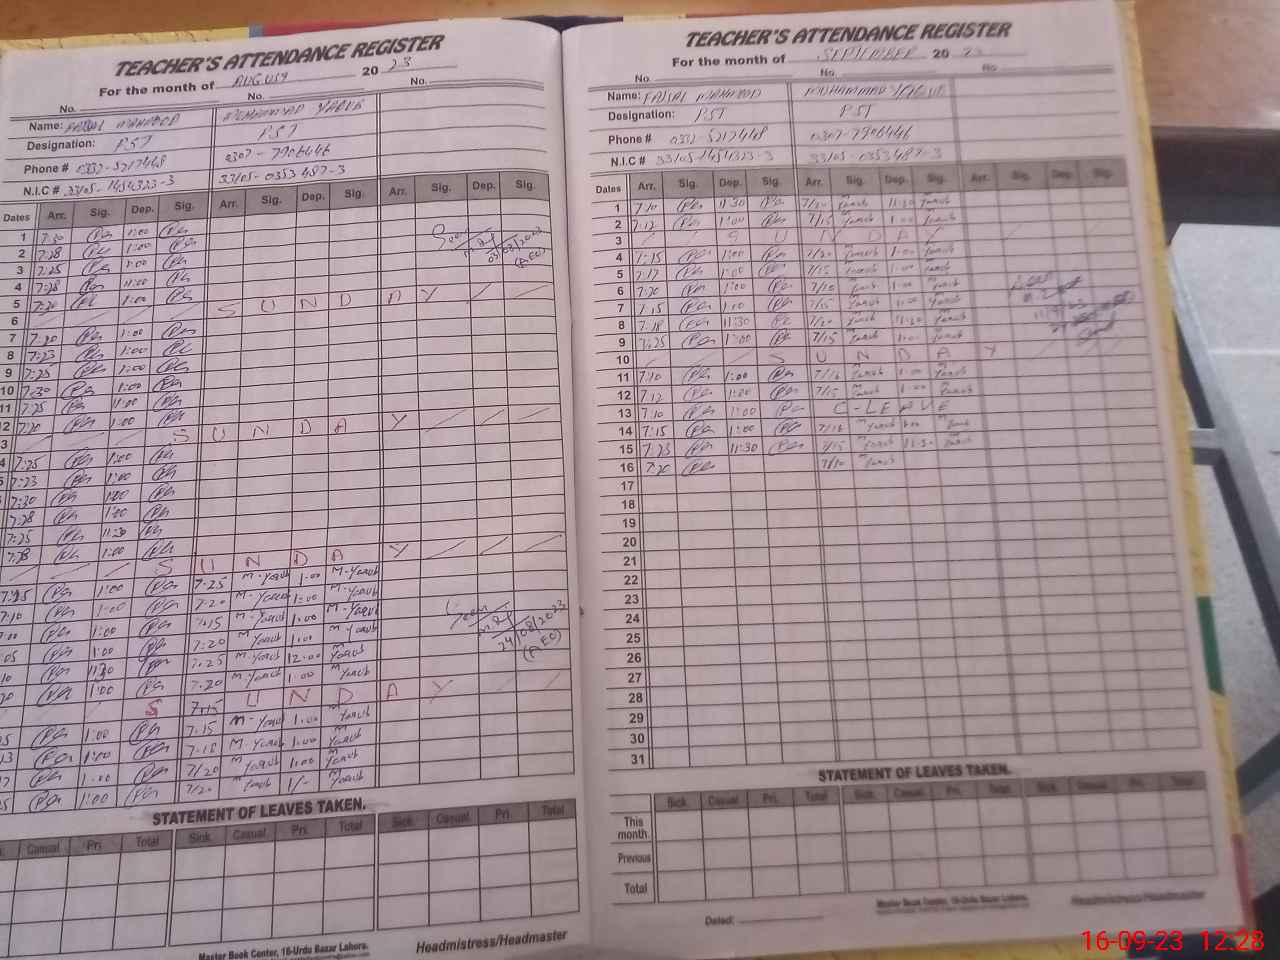 TEACHER'S ATTENDANCE REGISTER
For the month of AUGUST 2023
No. No. No.
Name: FAISAL MAHMOOD MUHAMMAD YAQUB
Designation: PST PST
Phone # 0332-5217448 0307-7906446
N.I.C # 33105-1454323-3 33105-0353487-3
Dates Arr. Sig. Dep. Sig. Arr. Sig. Dep. Sig. Arr. Sig. Dep. Sig.
1 7:30 1:00
2 7:28 1:00 Seen
3 7:25 1:00 03/08/2023
4 7:28 11:00 (AEO)
5 7:20 1:00
6 SUNDAY
7 7:20 1:00
8 7:23 1:00
9 7:25 1:00
10 7:30 1:00
11 7:25 1:00
12 7:20 1:00
3 SUNDAY
4 7:25 1:00
7:23 1:00
7:30 1:00
7:28 1:00
7:25 11:30
7:28 1:00
SUNDAY
7:15 1:00 7:25 M.Yaqub 1:00 M.Yaqub
7:10 1:00 7:20 M.Yaqub 1:00 M.Yaqub
1:00 7:15 M.Yaqub 1:00 M.Yaqub
05 1:00 7:20 M.Yaqub 1:00 M Yaqub
10 11:30 7:25 M.Yaqub 12:00 M Yaqub
20 1:00 7:20 M.Yaqub 1:00 M Yaqub
Seen
24/08/2023
(AEO)
SUNDAY
7:15
1:00 7:15 M.Yaqub 1:00 M Yaqub
13 1:00 7:18 M.Yaqub 1:00 M Yaqub
1:00 7/20 M Yaqub 1:00 M Yaqub
1:00 7/20 M Yaqub 1/- M Yaqub
STATEMENT OF LEAVES TAKEN.
Casual Pri. Total Sick. Casual Pri. Total Sick. Casual Pri. Total
Master Book Center, 16-Urdu Bazar Lahore.
Headmistress/Headmaster
TEACHER'S ATTENDANCE REGISTER
For the month of SEPTEMBER 2023
No. No. No.
Name: FAISAL MAHMOOD MUHAMMAD YAQUB
Designation: PST PST
Phone # 0332-5217448 0307-7906446
N.I.C # 33105-1454323-3 33105-0353487-3
Dates Arr. Sig. Dep. Sig. Arr. Sig. Dep. Sig. Arr. Sig. Dep. Sig.
1 7:10 11:30 7/20 M Yaqub 11:30 M Yaqub
2 7:12 1:00 7/15 M Yaqub 1:00 M Yaqub
3 SUNDAY
4 7:15 1:00 7/20 M Yaqub 1:00 M Yaqub
5 7:17 1:00 7/15 M Yaqub 1:00 M Yaqub
6 7:20 1:00 7/10 M Yaqub 1:00 M Yaqub
7 7:15 1:00 7/15 M Yaqub 1:00 M Yaqub
8 7:18 11:30 7/20 M Yaqub 11:30 M Yaqub
9 7:25 1:00 7/15 M Yaqub 1:00 M Yaqub
10 SUNDAY
11 7:10 1:00 7/16 M Yaqub 1:00 M Yaqub
12 7:12 1:00 7/15 M Yaqub 1:00 M Yaqub
13 7:10 1:00 C-LEAVE
14 7:15 1:00 7/18 M Yaqub 1:00 M Yaqub
15 7:23 11:30 7/15 M Yaqub 11:30 M Yaqub
16 7:20 7/10 M Yaqub
17
18
19
20
21
22
23
24
25
26
27
28
29
30
31
STATEMENT OF LEAVES TAKEN.
Sick. Casual Pri. Total Sick. Casual Pri. Total Sick. Casual Pri. Total
This month.
Previous
Total
Dated:
Master Book Center, 16-Urdu Bazar Lahore.
Headmistress/Headmaster
16-09-23 12:28